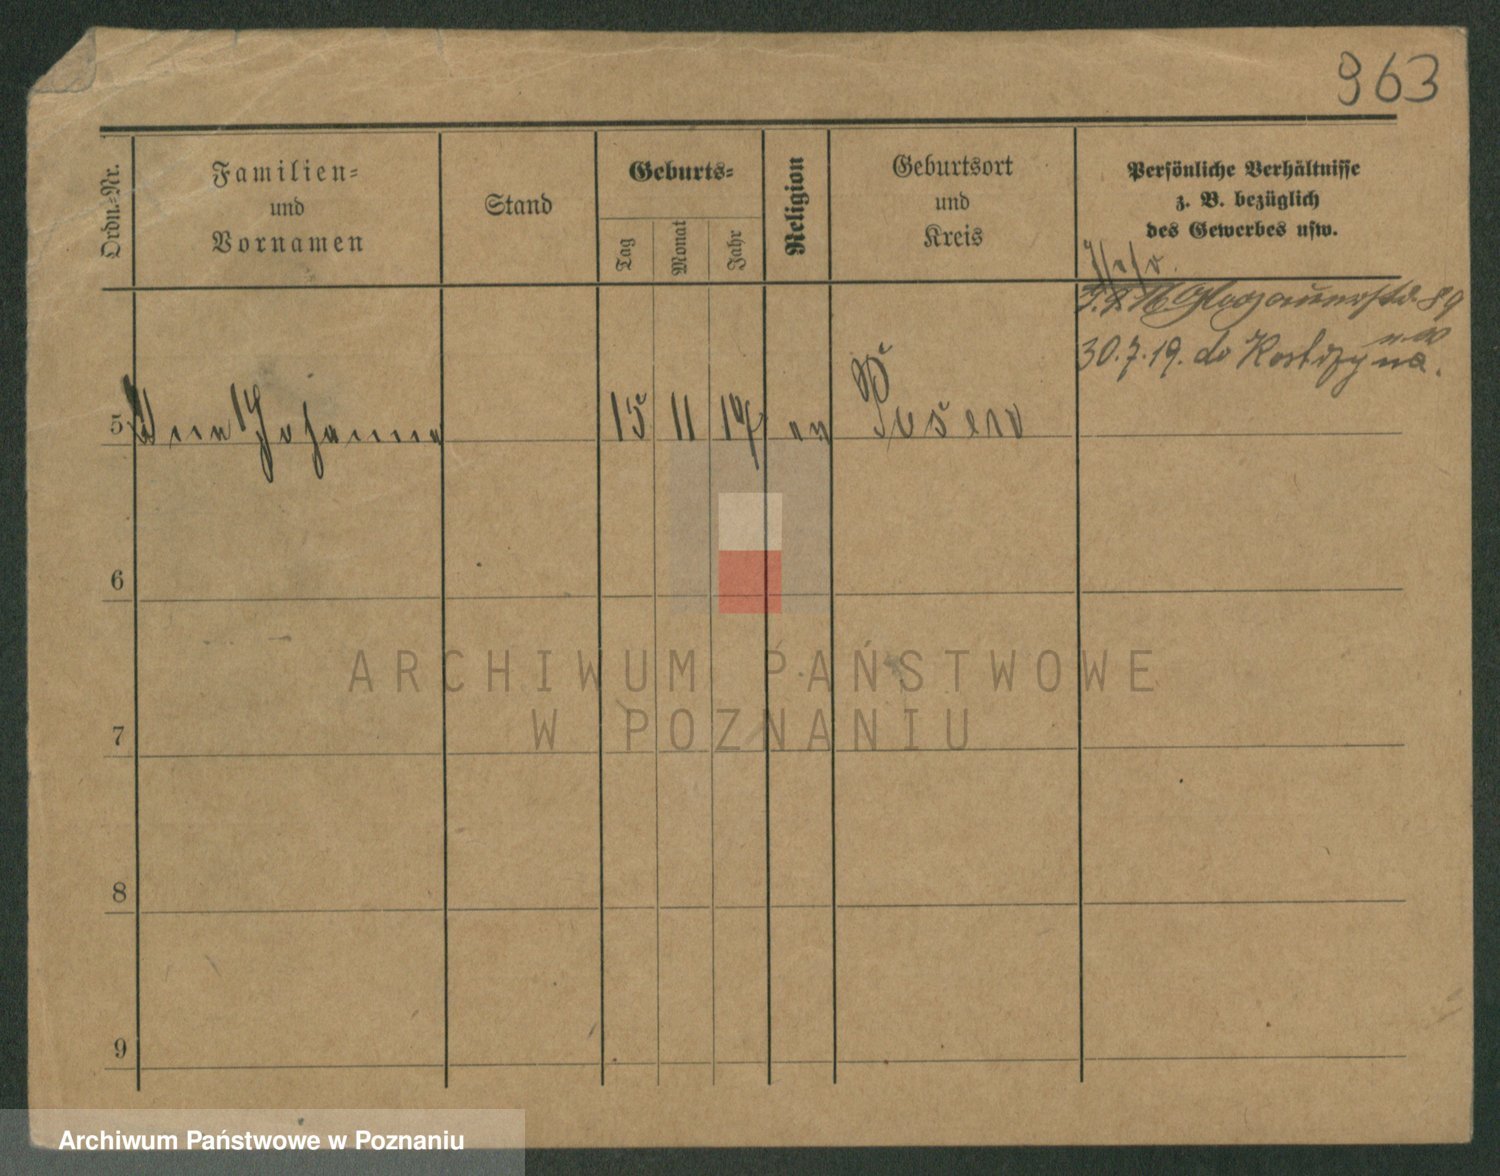 963
Ordn.-Nr.
Familien-
und
Vornamen
Stand
Geburts-
Tag
Monat
Jahr
Religion
Geburtsort
und
Kreis
Persönliche Verhältnisse
z. B. bezüglich
des Gewerbes usw.
Glogauerstr. 89
30.7.19. do Kostrzyna.
5 Johanna 15 11 17 ev Posen
6
7
8
9
ARCHIWUM PAŃSTWOWE
W POZNANIU
Archiwum Państwowe w Poznaniu